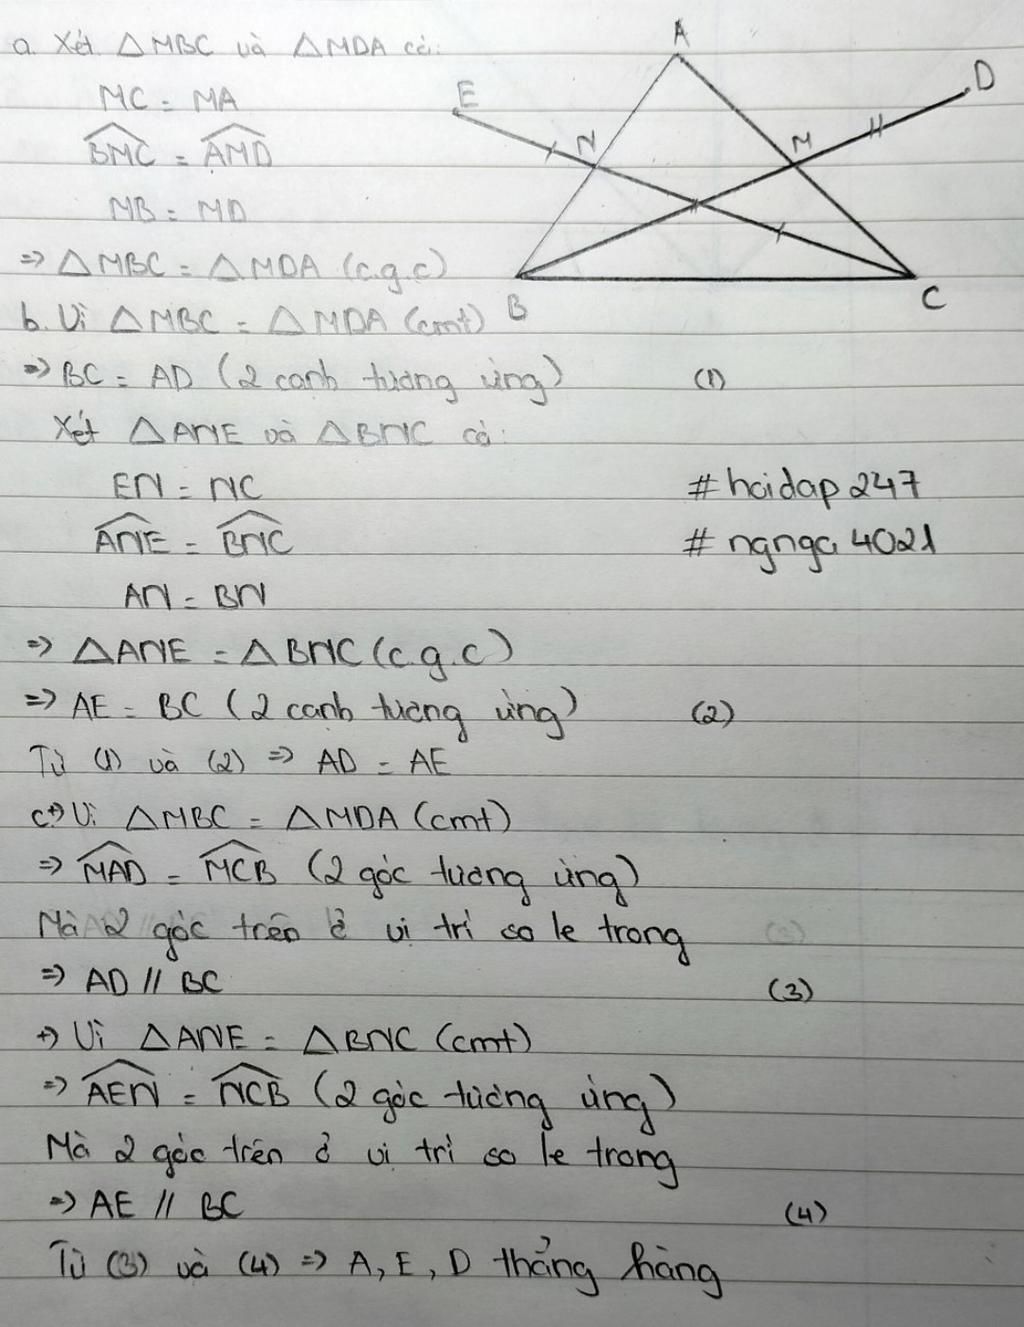 a. Xét △MBC và △MDA có:
MC = MA
BMC = AMD
MB = MD
=> △MBC = △MDA (c.g.c)
b. Vì △MBC = △MDA (cmt)
=> BC = AD (2 cạnh tương ứng) (1)
Xét △ANE và △BNC có:
EN = NC
ANE = BNC
AN = BN
=> △ANE = △BNC (c.g.c)
=> AE = BC (2 cạnh tương ứng) (2)
Từ (1) và (2) => AD = AE
c +) Vì △MBC = △MDA (cmt)
=> MAD = MCB (2 góc tương ứng)
Mà 2 góc trên ở vị trí so le trong
=> AD // BC (3)
+) Vì △ANE = △BNC (cmt)
=> AEN = NCB (2 góc tương ứng)
Mà 2 góc trên ở vị trí so le trong
=> AE // BC (4)
Từ (3) và (4) => A, E, D thẳng hàng
A
E
D
N
M
B
C
#hoidap247
#ngnga4021